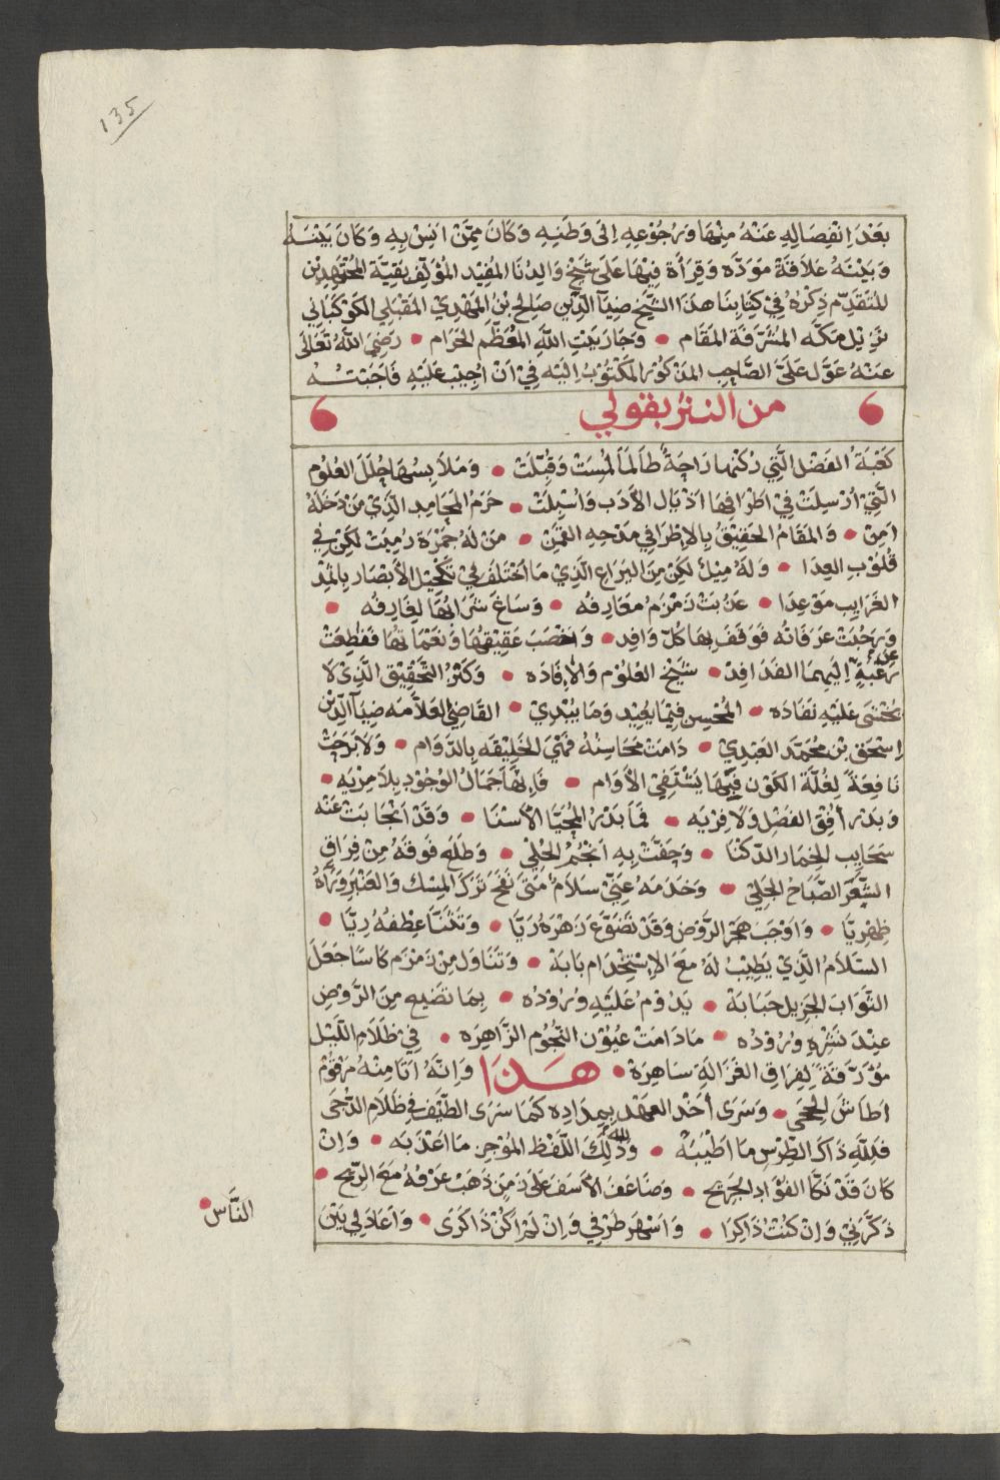 135
بَعْدَ اِنْفِصَالِهِ عَنْهُ مِنْهَا وَرُجُوْعِهِ اِلَى وَطَنِهِ وَكَانَ مِمَّنْ انِسَ بِهِ وَكَانَ بَيْنَهُ
وَبَيْنَهُ عَلَاقَةُ مَوَدَّه وَقِرَأة فِيْهَا عَلَى شَيْخِ وَالِدُنَا المُفِيْد المُؤلِّف بَقِيَّة المُجْتَهِدِيْن
المُتَقَدِّم ذِكْرُهُ فِيْ كِتَابِنَا هذَا الشَّيْخ ضِيَآ الدِّيْنِ صَالِح بْنُ المَهْدِي المَقْبَلِي الكَوْكَبَانِي
نَزِيْل مَكَّه المُشَرَّفَة المَقَام • وَجَار بَيْتِ اللهِ المُعَظَّم الحَرَام • رَضِيَ اللهُ تَعَالَى
عَنْهُ عَوَّلَ عَلَيَّ الصَّاحِبِ المَذْكُوْر المَكْتُوْبُ اِلَيْهِ فِيْ اَنْ اُجِيْبَ عَلَيْهِ فَاَجَبْتُهُ
من النثر بقولي
كَعْبَةُ الفَضْل الَّتِي رُكْنُهَا رَاحَةٌ طَالَمَا لُمِسَتْ وَقُبِّلَتْ • وَمَلَابِسُهَا حُلَلُ العُلُوْم
الَّتِيْ اُرْسِلَتْ فِيْ اطْرَافِهَا اذْيَال الأَدَب وَاُسْبِلَتْ • حَرَمُ المَحَامِد الَّذِيْ مَنْ دَخَلَهُ
اَمِنْ • وَالمَقَامُ الحَقِيْقُ بِالاِطْرَا فِي مَدْحِهِ القَمِنْ • مَنْ لَهُ جَمْرَة رُمِيَتْ لكِنْ فِي
قُلُوْبِ العِدَا • وَلَهُ مِيْلٌ لكِنْ مِنَ اليَرَاع الَّذِيْ مَا اخْتَلَفَ فِيْ تَكْحِيْل الأَبْصَار بِاثْمُدْ
الغَرَايِب مَوْعِدَا • عَذُبَتْ زَمْزَمُ مَعَارِفُه • وَسَاغَ شَرَابُهَا لِغَارِفُه •
وَرَحُبَتْ عَرَفَاتُه فَوَقَفَ بِهَا كُلّ وَافِد • وَاخْصَبَ عَقِيْقُهَا وَنُعْمَانُهَا فَقُطِعَتْ
رَغْبَةً اِلَيْهِمَا الفَدَافِدْ • شَيْخ العُلُوْم وَالاِفَادَه • وَكَنْزُ التَّحْقِيْق الَّذِيْ لَا
يُخْشَى عَلَيْهِ نَفَادَه • المُحْسِن فِيْمَا يُعِيْد وَمَا يُبْدِيْ • القَاضِيْ العَلَّامَه ضِيَآ الدِّيْن
اِسْحَق بِنْ مُحَمَّد العَبْدِيْ • دَامَتْ مَحَاسِنُهُ فِيْ الخَلِيْقَه بِالدَّوَام • وَلَا بَرَحَتْ
نَافِعَةً لِغُلَّة الكَوْن فَبِهَا يَشْتَفِيْ الأُوَام • فَاِنَّهَا جَمَالُ الوُجُوْد بِلَا مِرْيَه •
وَبَدْر اُفُقِ الفَضْل وَلَا فِرْيَه • فَمَا بَدْرُ المُحَيَّا الأَسْنَا • وَقَدْ انْجَابَتْ عَنْه
سَحَايِب الخِمَار الدَّكْنَا • وَحَفَّتْ بِهِ انْجُمُ الحُلِيْ • وَطَلَعَ فَوقَهُ مِنْ فِرَاقِ
الشَّعَر الصَّبَاحُ الجَلِيْ • وَخَدَمَهُ عَنِّيْ سَلَامٌ مَتَى نَفَحَ تَرَكَ المِسْك وَالعَنْبَر وَرَاهُ
ظِهْرِيَّا • وَاَوْجَبَ هَجْرَ الرَّوْض وَقَدْ تَضَوَّعَ زَهْرَهُ رَيَّا • وَتَثَنَّا عِطْفُهُ رِيَّا •
السَّلَامُ الَّذِيْ يَطِيْبُ لَهُ مَعَ الاِسْتِخْدَام بَابَهْ • وَتَنَاوَل مِنْ زَمْزَم كَاسًا جَعَلَ
الثَّوَاب الجَزِيْل حَبَابَهْ • يَدُوْمُ عَلَيْهِ وُرُوْدُه • بِمَا تَضَيَّع مِنَ الرَّوْضِ
عِنْدَ نَشْرِهِ وُرُوْدُه • مَا دَامَتْ عُيُوْن النُّجُوْم الزَّاهِرَه • فِيْ ظَلَامِ اللَّيْل
مُؤَرَّقَةً لِفِرَاقِ الغَزَالَةِ سَاهِرَةْ • هـــذا وَاِنَّهُ اتَانَا مِنْهُ مَرْقُوْمٌ
اطَاشَ الحِجَى • وَسَرَى اُخْذ العَهْد بِمِدَادِه كَمَا سَرَى الطَّيْف فِيْ ظَلَام الدُّجَى
فَلِلّهِ ذَاكَ الطِّرْس مَا اَطْيَبَهُ • وَلله ذَلِكَ اللَّفْظ المُوْجِز مَا اعْذَبَه • وَاِنْ
كَانَ قَدْ نَكَّا الفُؤَاد الجَرِيْح • وَضَاعَفَ الأَسَف عَلَى زَمَنٍ ذَهَبَ عَرْفُهُ مَعَ الرِّيْح •
ذَكَّرَنِيْ وَاِنْ كُنْتُ ذَاكِرَا • وَاَسْهَر طَرْفِي وَاِنْ لَمْ اكُنْ ذَا كَرَى • وَاَعَادَ لِي بَيْن
النَّاس